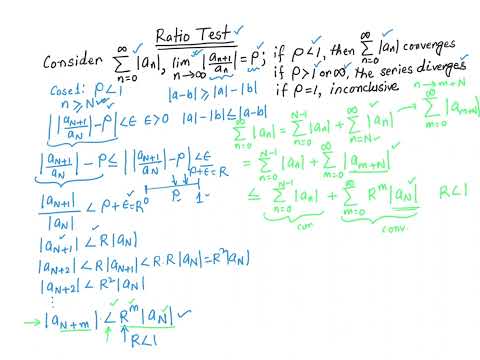 Ratio Test
Consider ∑_{n=0}^{∞} |aₙ|, lim_{n→∞} |aₙ₊₁/aₙ| = ρ; if ρ<1, then ∑_{n=0}^{∞} |aₙ| converges
if ρ>1 or ∞, the series diverges
if ρ=1, inconclusive
Case1: ρ<1
n ≥ N
|a-b| ≥ |a|-|b|
|a|-|b| ≤ |a-b|
| |a_{N+1}/a_N| - ρ | < ε ε>0
|a_{N+1}/a_N| - ρ ≤ | |a_{N+1}/a_N| - ρ | < ε
ρ+ε=R
ρ 1
|a_{N+1}|/|a_N| < ρ+ε=R
|a_{N+1}| < R|a_N|
|a_{N+2}| < R|a_{N+1}| < R.R|a_N| = R²|a_N|
|a_{N+2}| < R²|a_N|
⋮
→ |a_{N+m}| < R^m |a_N|
R<1
n→m+N
∑_{n=0}^{∞} |aₙ| = ∑_{n=0}^{N-1} |aₙ| + ∑_{n=N}^{∞} |aₙ| → ∑_{m=0}^{∞} |a_{m+N}|
= ∑_{n=0}^{N-1} |aₙ| + ∑_{m=0}^{∞} |a_{m+N}|
≤ ∑_{n=0}^{N-1} |aₙ| + ∑_{m=0}^{∞} R^m |a_N| R<1
con. conv.